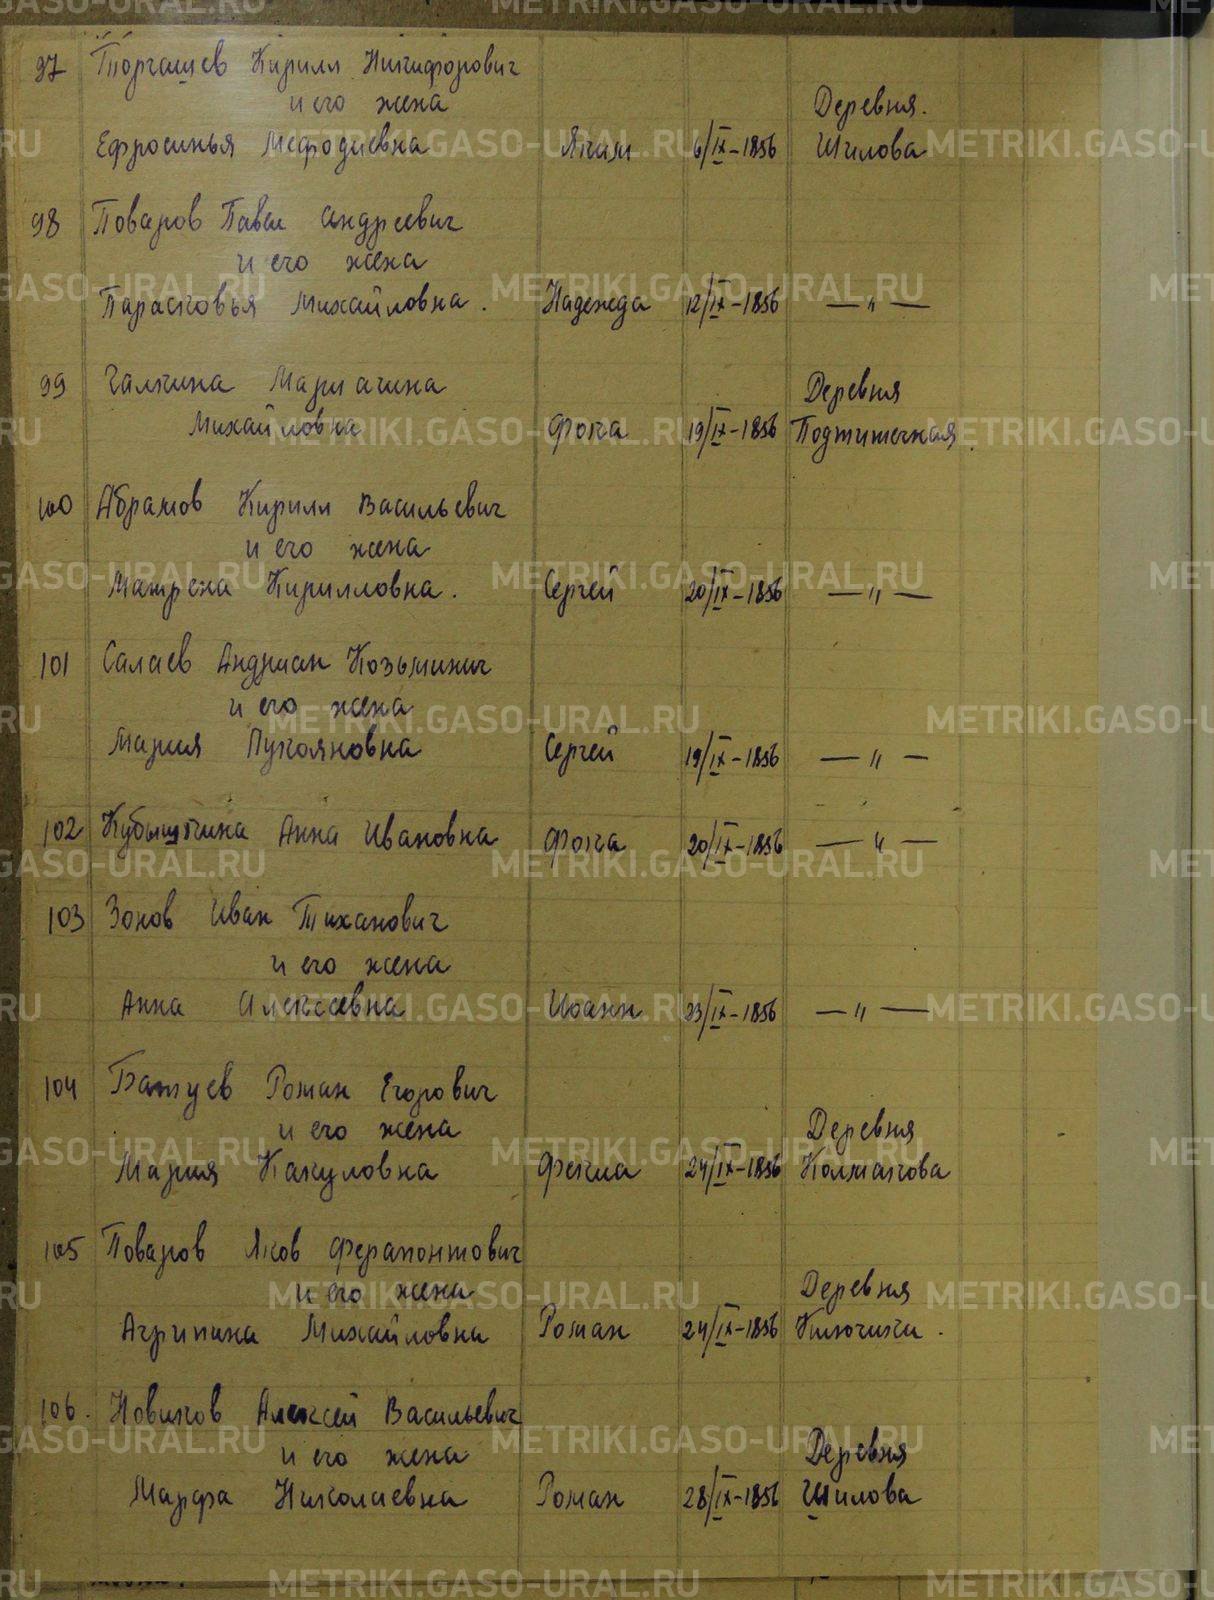 97 Торгашев Кирилл Никифорович
и его жена
Деревня.
Ефросинья Мефодиевна Яким 6/IX-1856 Шилова
98 Поваров Павел Андреевич
и его жена
Парасковья Михайловна. Надежда 12/IX-1856 — " —
99 Галкина Мариамна
Деревня
Михайловна Фока 19/IX-1856 Подтишечная.
100 Абрамов Кирилл Васильевич
и его жена
Матрена Кирилловна. Сергей 20/IX-1856 — " —
101 Салаев Андриан Козьминич
и его жена
Мария Лукояновна Сергей 19/IX-1856 — " —
102 Кубышкина Анна Ивановна Фока 20/IX-1856 — " —
103 Зонов Иван Тиханович
и его жена
Анна Алексеевна Иоанн 23/IX-1856 — " —
104 Батуев Роман Егорович
и его жена
Деревня
Мария Какуловна Фекла 24/IX-1856 Колмакова
105 Поваров Яков Ферапонтович
и его жена
Деревня
Агрипина Михайловна Роман 24/IX-1856 Ключики.
106. Новиков Алексей Васильевич
и его жена
Деревня
Марфа Николаевна Роман 28/IX-1856 Шилова
METRIKI.GASO-URAL.RU